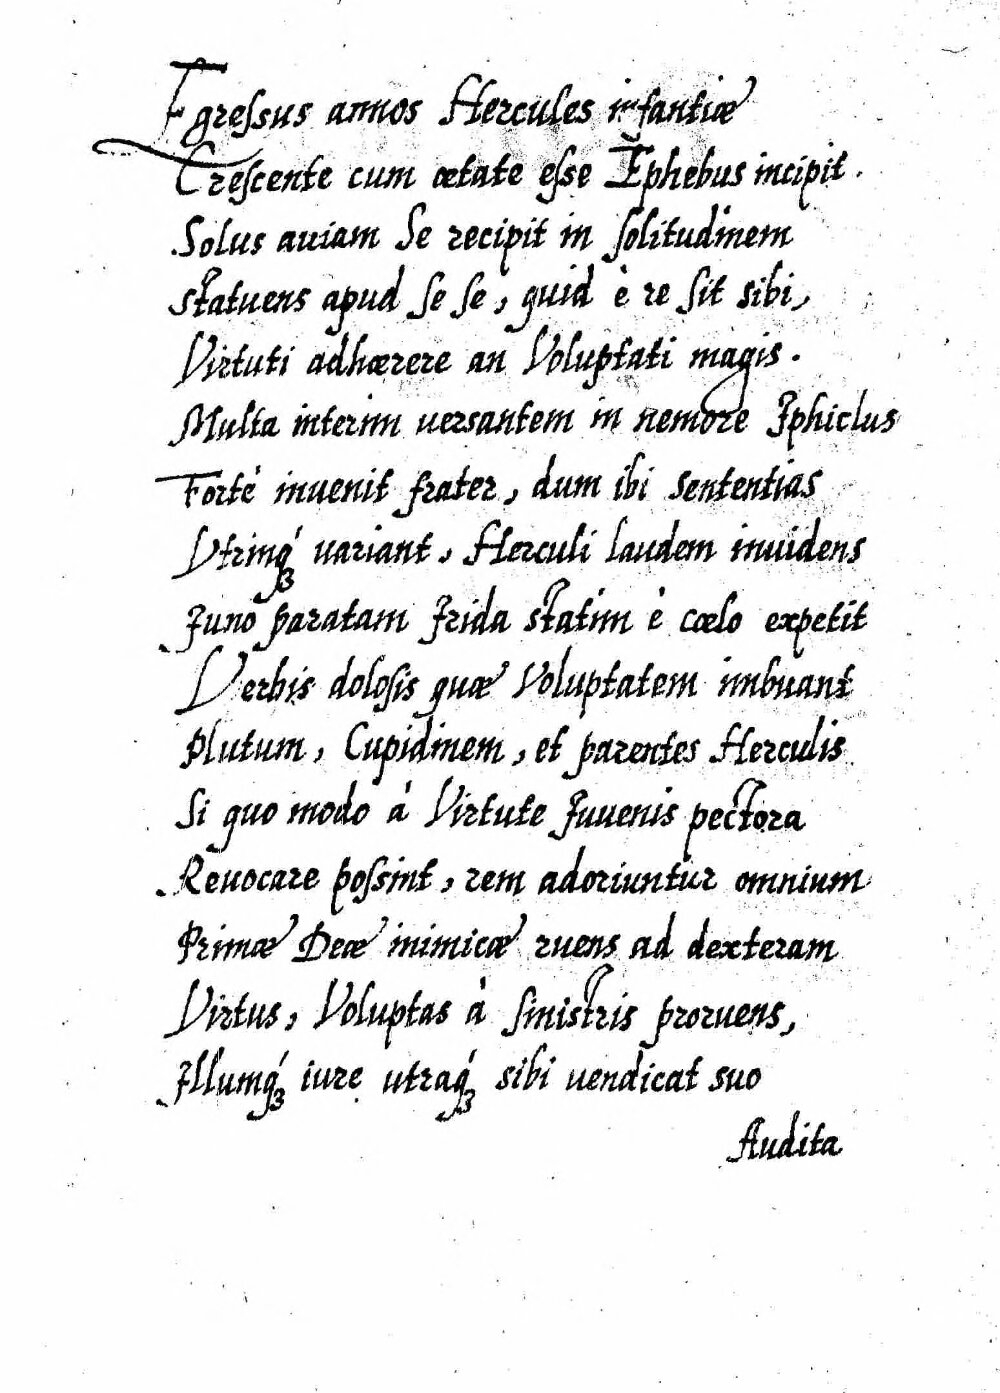 Egreſsus annos Hercules infantiæ
Creſcente cum ætate eſse Ephebus incipit.
Solus auiam Se recipit in ſolitudinem
Statuens apud ſe ſe, quid è re ſit sibi,
Virtuti adhærere an Voluptati magis.
Multa interim uersantem in nemore Iphiclus
Fortè inuenit frater, dum ibi sententias
Vtrinq́ꝫ uariant, Herculi laudem inuidens
Juno paratam Irida statim è cœlo expetit
Verbis doloſis quæ Voluptatem imbuant
Plutum, Cupidinem, et parentes Herculis
Si quo modo à Virtute Juuenis pectora
Reuocare poſsint, rem adoriuntur omnium
Primæ Deæ inimicæ ruens ad dexteram
Virtus, Voluptas à ſinistris proruens,
Illumq́ꝫ iure utraq́ꝫ sibi uendicat suo
Audita